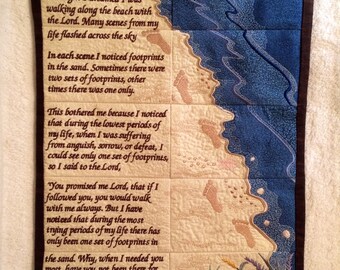 walking along the beach with
the Lord. Many scenes from my
life flashed across the sky
In each scene I noticed footprints
in the sand. Sometimes there were
two sets of footprints, other
times there was only one.
This bothered me because I noticed
that during the lowest periods of
my life, when I was suffering
from anguish, sorrow, or defeat, I
could see only one set of footprints,
so I said to the Lord,
"You promised me Lord, that if I
followed you, you would walk
with me always. But I have
noticed that during the most
trying periods of my life there has
only been one set of footprints in
the sand. Why, when I needed you
most, have you not been there for